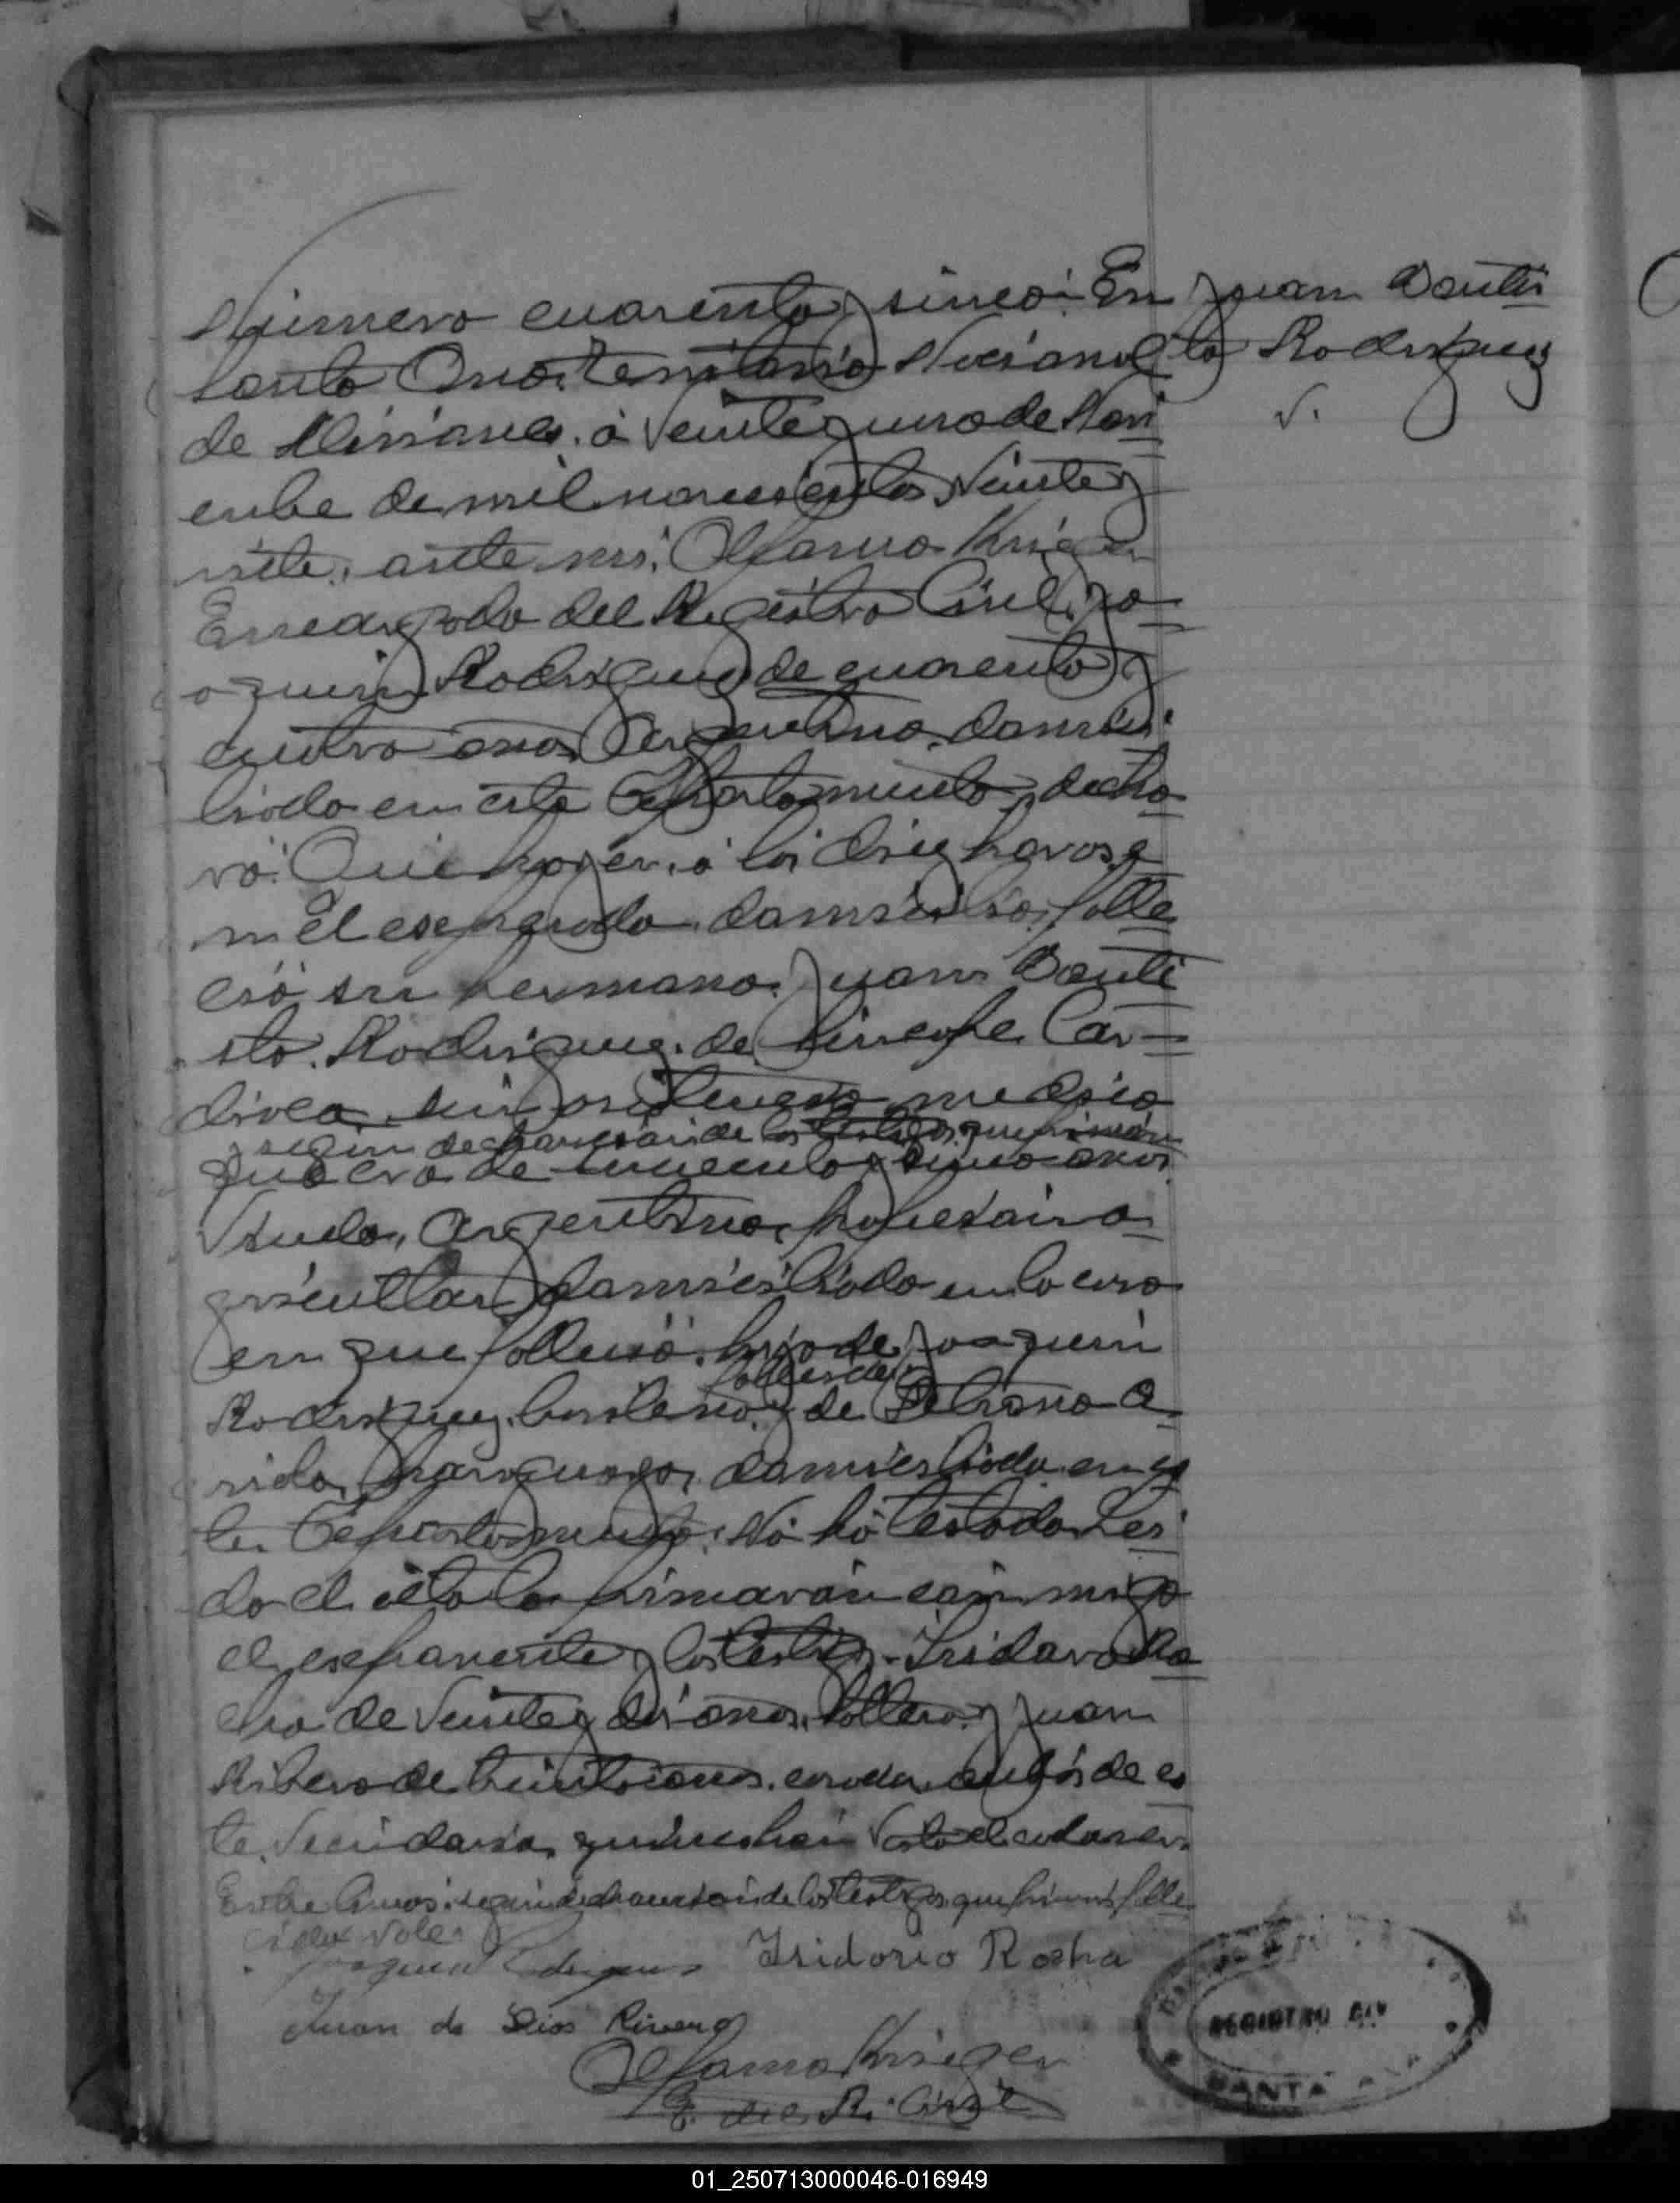 Número cuarenta y sinco: En
Santa Ana, territorio Nacional
de Misiones, a veinte y uno de Novi
enbe de mil novecientos veinte y
siete, ante mi, Krieger
Encargado del Registro Civil, Jo
aquin Rodriguez de cuarenta y
cuatro anos, Argentino, domisi
liado en este Departamento, decla
ró: Que hoyer, a las dies horas, e
n el espresado domisilio, falle
ció su hermano, Juan Bauti
sta Rodriguez, de Sincope Car
diaca, sin asistencia medica
segun declarasion de los testigos que firman
que era de sincuenta y sinco anos
Viudo, Argentino, profesion a
gricultor, domisiliado en la casa
en que fallesió, hijo de Joaquin
fallesido
Rodriguez, brasilero, y de
paraguaya, domisiliada en es
te Departamento. No há testado. Lei
da el acta la firmaron conmigo
el exponente y los testigos Isidoro Ro
cha de veinte y dos anos, soltero, y Juan
Ribero de treinta anos, casado, anbos de es
te vecindario, quienes han visto el cadaver.
Entre lineas: segun declarasion de los testigos que firman, falle
cido Vale.
Joaquin Rodriguez Isidorio Rocha
Juan de Dios Rivero
Krieger
E. del R. Civil
Juan Bautis
ta Rodriguez
V.
REGISTRO CIV
SANTA ANA
01_250713000046-016949